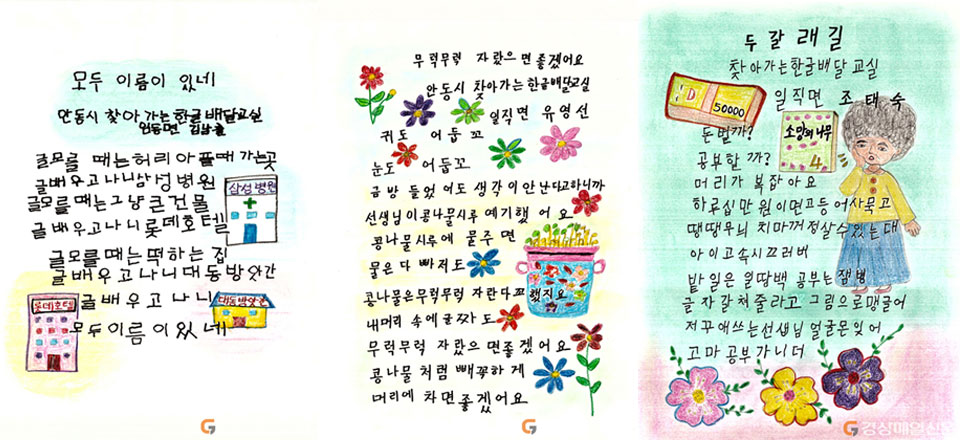 모두 이름이 있네
안동시 찾아가는 한글배달교실
글모를 때는 허리 아플때 가는곳
글배우고 나니 삼성병원
글모를 때는 그냥 큰 건물
글배우고 나니 롯데호텔
글모를 때는 떡하는 집
글배우고 나니 대동방앗간
글배우고 나니
모두 이름이 있네
삼성병원
롯데호텔
대동방앗간
무럭무럭 자랐으면 좋겠어요
안동시 찾아가는 한글배달교실
일직면 유영선
귀도 어둡꼬
눈도 어둡꼬
금방 들었어도 생각이 안 난다고하니까
선생님이 콩나물시루 예기했어요
콩나물시루에 물주면
물은 다 빠저도
콩나물은 무럭무럭 자란다꼬 했지요
내머리 속에 글짜도
무럭무럭 자랐으면 좋겠어요
콩나물처럼 빼꼭하게
머리에 차면 좋겠어요
두 갈래길
찾아가는한글배달교실
일직면 조태숙
50000
돈벌까?
소망의 나무
4
공부할까?
머리가 복잡아요
하루십만원이면 고등어사묵고
땡땡무늬 치마꺼정살수있는대
아이고속시끄러버
밭일은 월땅백 공부는잼병
글자갈쳐줄라고 그림으로맹글어
저꾸애쓰는선생님 얼굴몬잊어
고마 공부가니더
경상매일신문